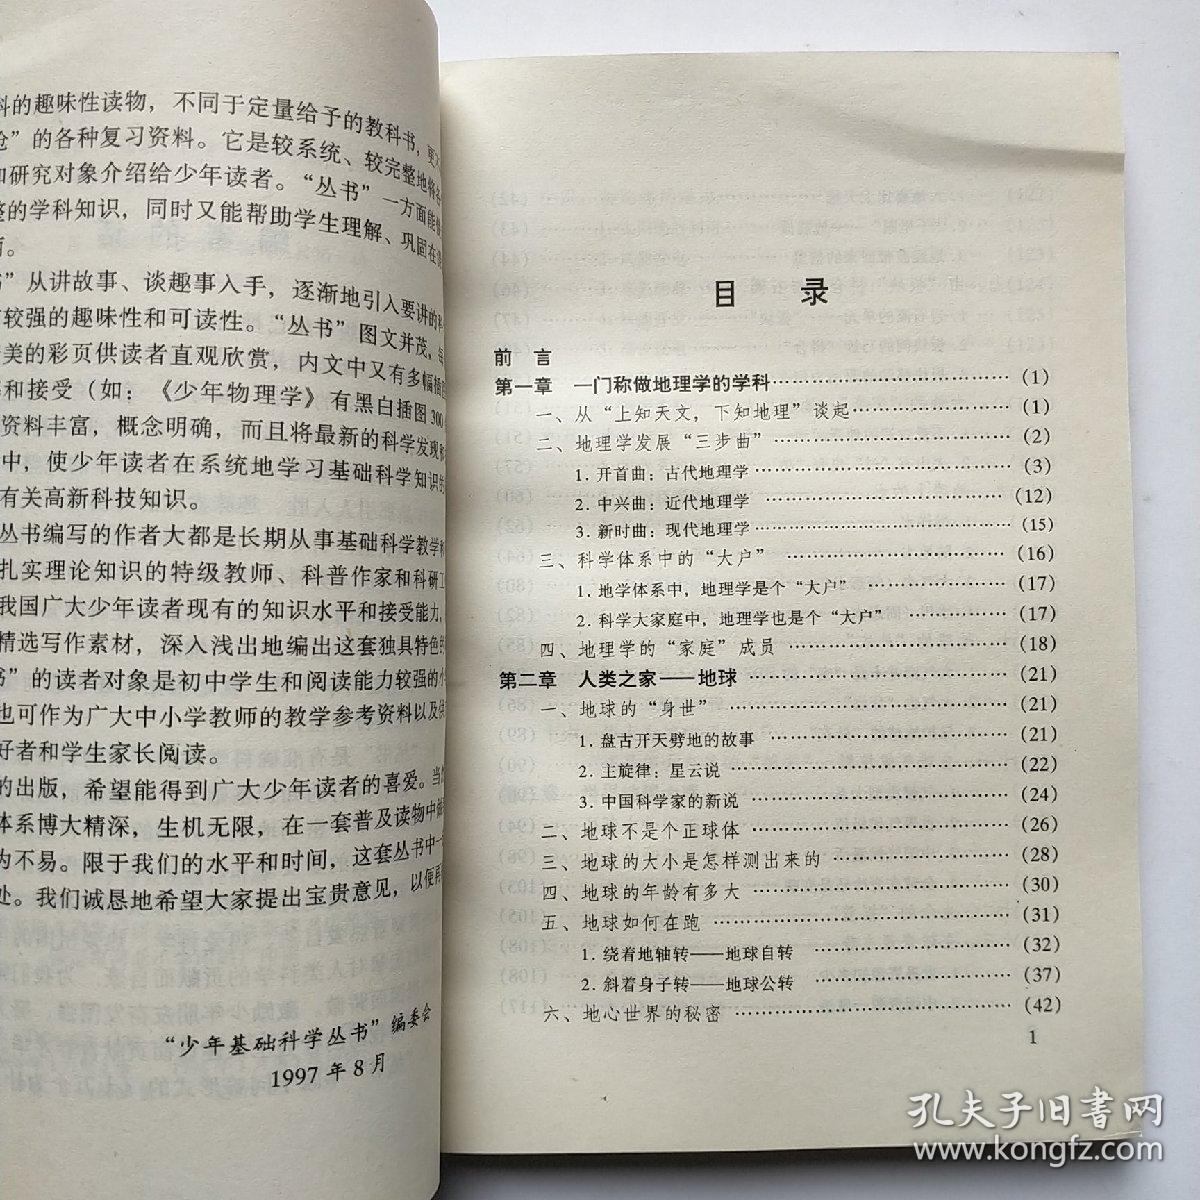 料的趣味性读物，不同于定量给予的教科书，
”的各种复习资料。它是较系统、较完整地将各
和研究对象介绍给少年读者。“丛书”一方面能
整的学科知识，同时又能帮助学生理解、巩固在
”从讲故事、谈趣事入手，逐渐地引入要讲的
较强的趣味性和可读性。“丛书”图文并茂，每
美的彩页供读者直观欣赏，内文中又有多幅插
和接受（如：《少年物理学》有黑白插图300
资料丰富，概念明确，而且将最新的科学发现
中，使少年读者在系统地学习基础科学知识的
有关高新科技知识。
丛书编写的作者大都是长期从事基础科学教学
扎实理论知识的特级教师、科普作家和科研工
我国广大少年读者现有的知识水平和接受能力，
精选写作素材，深入浅出地编出这套独具特色的
书”的读者对象是初中学生和阅读能力较强的小
也可作为广大中小学教师的教学参考资料以及供
好者和学生家长阅读。
的出版，希望能得到广大少年读者的喜爱。当
体系博大精深，生机无限，在一套普及读物中
为不易。限于我们的水平和时间，这套丛书中
处。我们诚恳地希望大家提出宝贵意见，以便再
“少年基础科学丛书”编委会
1997年8月
目 录
前 言
第一章 一门称做地理学的学科……………………(1)
一、从“上知天文，下知地理”谈起……………(1)
二、地理学发展“三步曲”……………………(2)
1. 开首曲：古代地理学……………………(3)
2. 中兴曲：近代地理学……………………(12)
3. 新时曲：现代地理学……………………(15)
三、科学体系中的“大户”……………………(16)
1. 地学体系中，地理学是个“大户”…………(17)
2. 科学大家庭中，地理学也是个“大户”………(17)
四、地理学的“家庭”成员……………………(18)
第二章 人类之家——地球……………………(21)
一、地球的“身世”……………………(21)
1. 盘古开天劈地的故事……………………(21)
2. 主旋律：星云说……………………(22)
3. 中国科学家的新说……………………(24)
二、地球不是个正球体……………………(26)
三、地球的大小是怎样测出来的………………(28)
四、地球的年龄有多大……………………(30)
五、地球如何在跑……………………(31)
1. 绕着地轴转——地球自转………………(32)
2. 斜着身子转——地球公转………………(37)
六、地心世界的秘密……………………(42)
1
孔夫子旧书网
www.kongfz.com